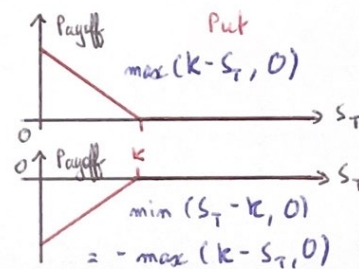 Payoff Put
max (K - S_T, 0)
0 K S_T
Payoff
0 S_T
min (S_T - K, 0)
= - max (K - S_T, 0)